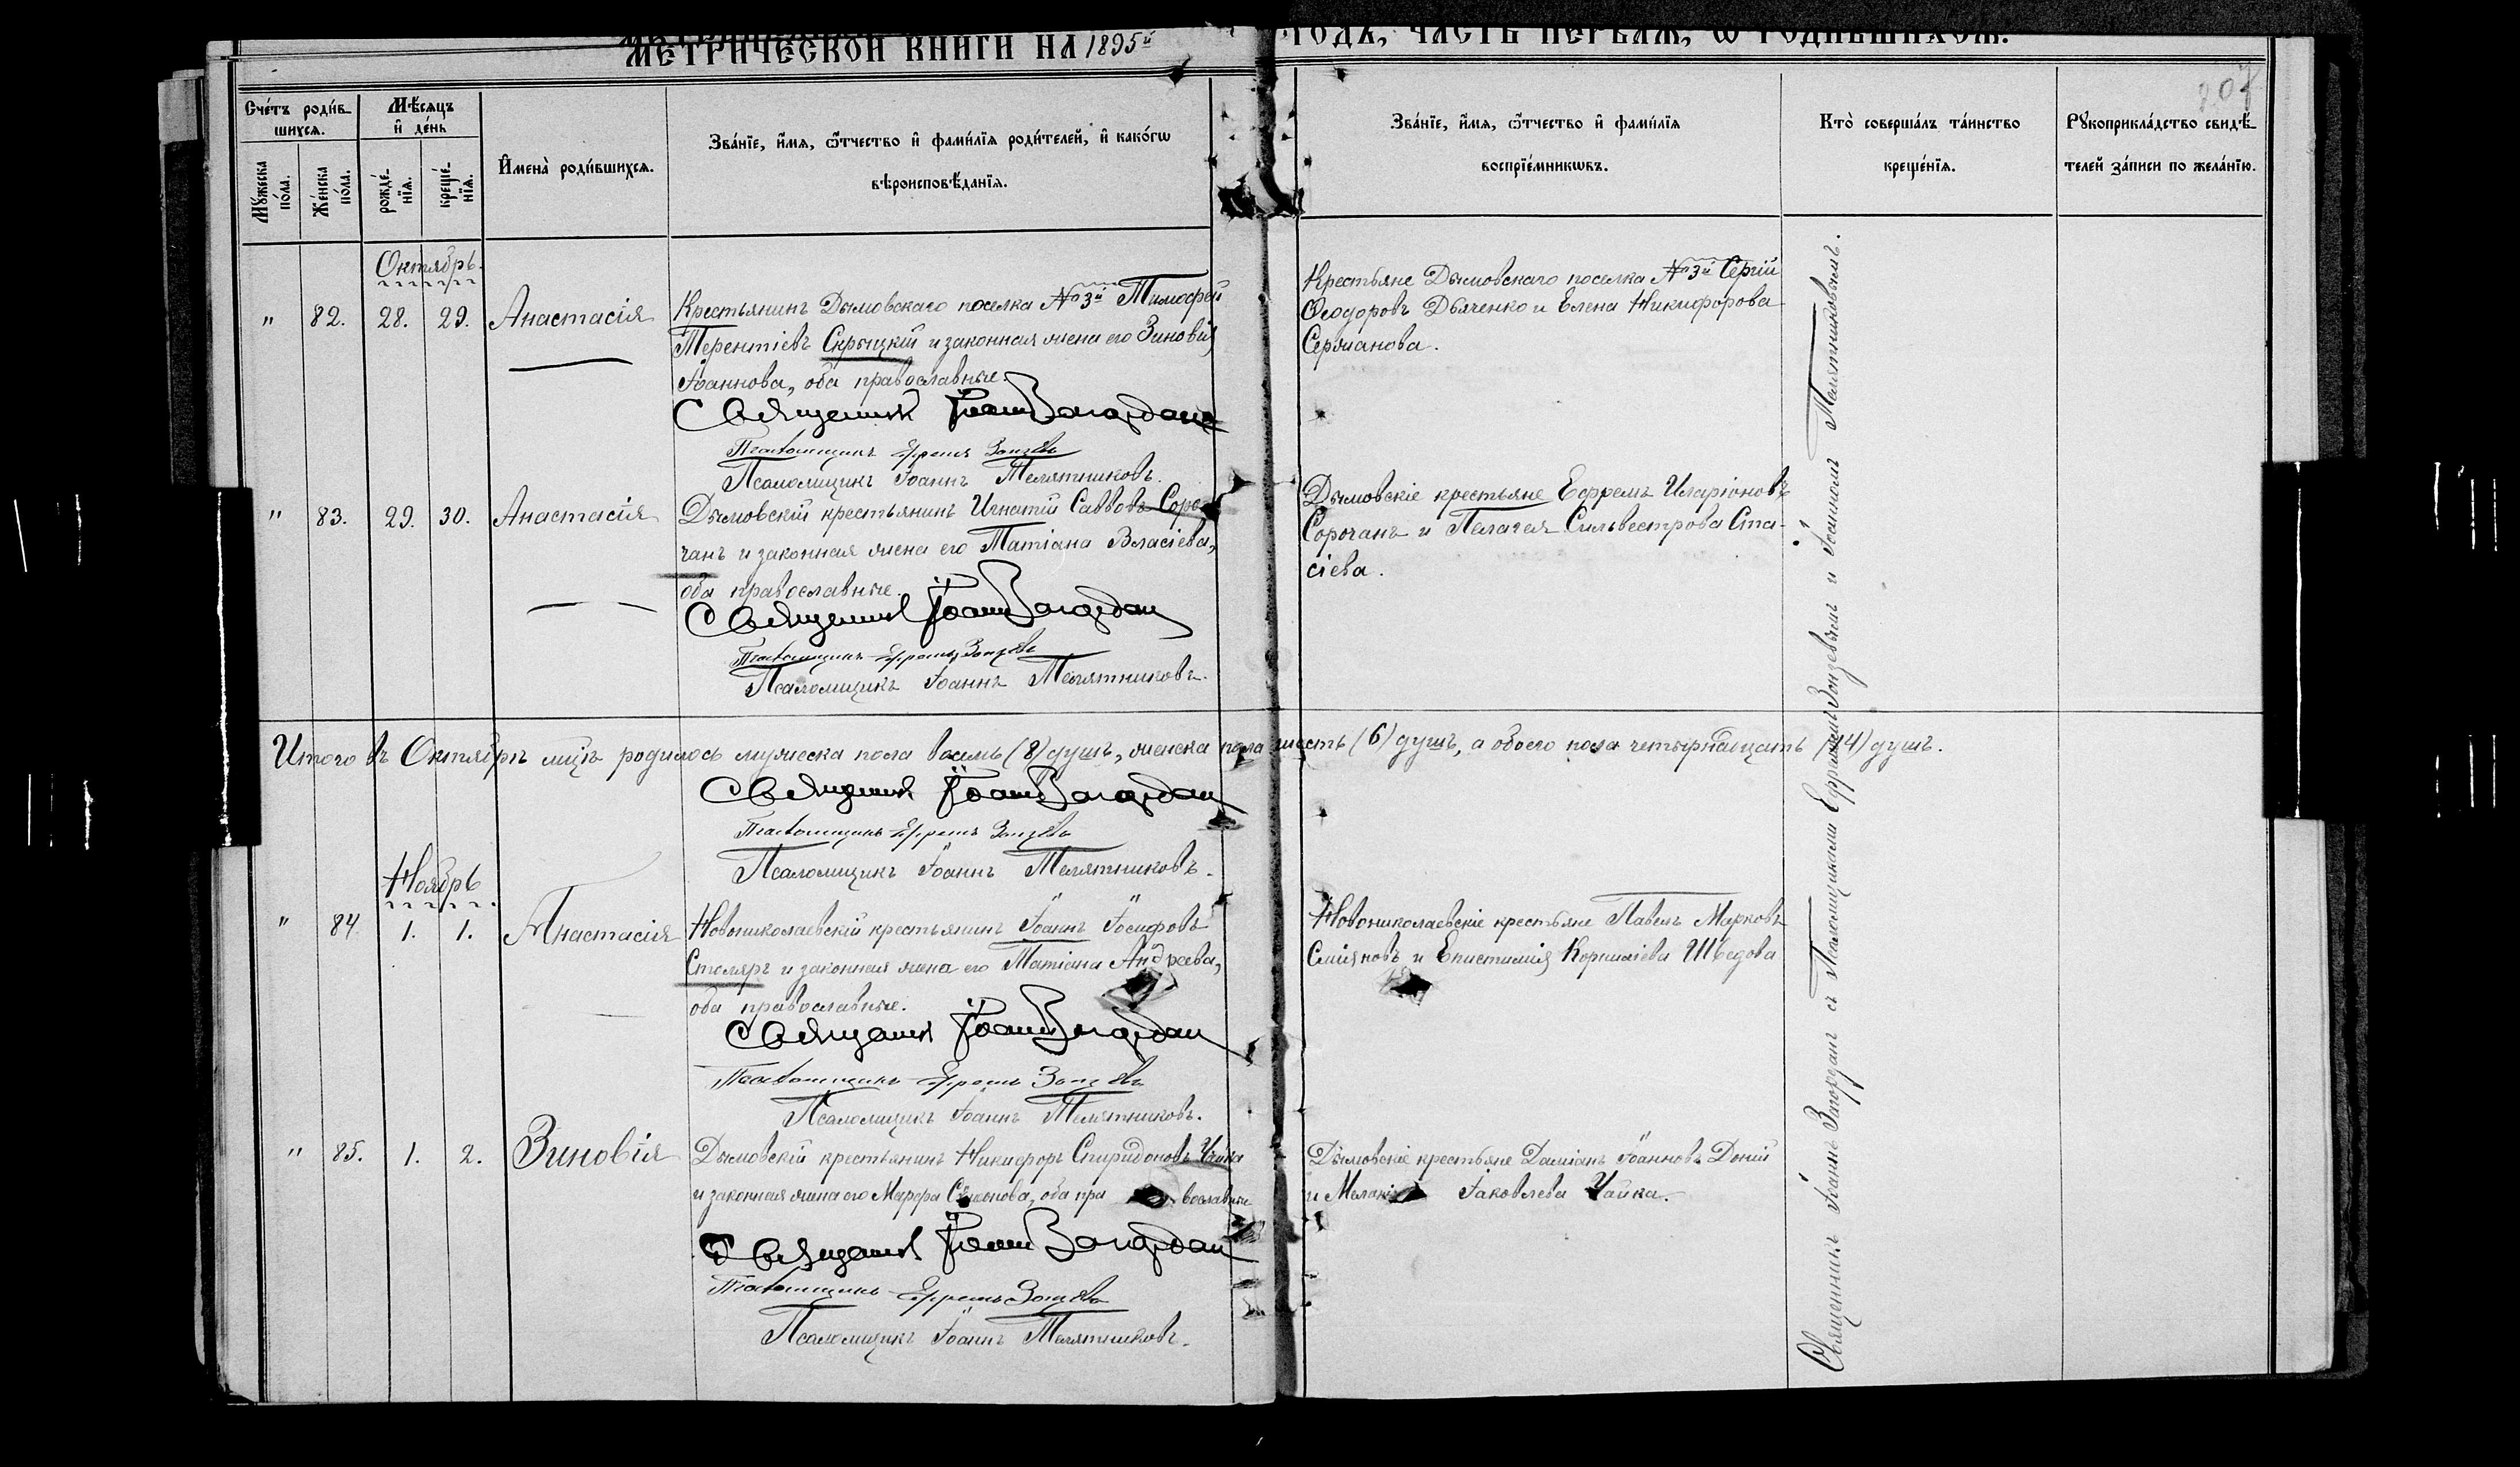 МЕТРИЧЕСКОЙ КНИГИ НА 1895й
ГОДЪ, ЧАСТЬ ПЕРВАЯ, Ѡ РОДИВШИХСЯ.
207
Сче́тъ роди́в-
шихся.
Мѣ́сяцъ
и҆ де́нь
Мꙋжеска
по́ла.
Же́нска
по́ла.
рожде́-
нїя.
креще́-
нїя.
И҆мена̀ роди́вшихся.
Зва́нїе, и҆́мя, ѻ҆́тчество и҆ фами́лїя роди́телей, и҆ како́гѡ
вѣроисповѣ́данїя.
Зва́нїе, и҆́мя, ѻ҆́тчество и҆ фами́лїя
воспрїе́мникѡвъ.
Кто̀ соверша́лъ та́инство
креще́нїя.
Рꙋкоприкла́дство свидѣ́-
телей за́писи по жела́нію.
Октябрь.
" 82. 28. 29. Анастасія
Крестьянинъ Дымовскаго поселка №3й Тимофей
Терентіевъ Скрыцкій и законная жена его Зиновія
Іоаннова, оба православные.
Священник Іоанн Загордан
Псаломщикъ Ефремъ Зонзевъ
Псаломщикъ Іоаннъ Телятниковъ.
Крестьяне Дымовскаго поселка №3й Сергій
Ѳеодоровъ Дьяченко и Елена Никифорова
Сержанова.
" 83. 29. 30. Анастасія
Дымовскій крестьянинъ Игнатій Саввовъ Соро-
чанъ и законная жена его Татіана Власіева,
оба православные.
Священник Іоанн Загордан
Псаломщикъ Ефремъ Зонзевъ
Псаломщикъ Іоаннъ Телятниковъ.
Дымовскіе крестьяне Ефремъ Иларіоновъ
Сорочанъ и Пелагея Сильвестрова Ста-
сіева.
Итого въ Октябрѣ мцѣ родилось мужеска пола восемь (8) душъ, женска пола шесть (6) душъ, а обоего пола четырнадцать (14) душъ.
Священник Іоанн Загордан
Псаломщикъ Ефремъ Зонзевъ
Псаломщикъ Іоаннъ Телятниковъ.
Ноябрь
" 84. 1. 1. Анастасія
Новониколаевскій крестьянинъ Іоаннъ Іосифовъ
Столяръ и законная жена его Татіана Андреева,
оба православные.
Священник Іоанн Загордан
Псаломщикъ Ефремъ Зонзевъ
Псаломщикъ Іоаннъ Телятниковъ.
Новониколаевскіе крестьяне Павелъ Марковъ
и Епистимія Корниліева Шведова
" 85. 1. 2. Зиновія
Дымовскій крестьянинъ Никифоръ Спиридоновъ Чайка
и законная жена его Марфа Симонова, оба пра вославные
Священник Іоанн Загордан
Псаломщикъ Ефремъ Зонзевъ
Псаломщикъ Іоаннъ Телятниковъ.
Дымовскіе крестьяне Даміанъ Іоанновъ Доній
и Меланія Іаковлева Чайка.
Священникъ Іоаннъ Загорданъ съ Псаломщиками Ефремомъ Зонзевымъ и Іоанномъ Телятниковымъ.